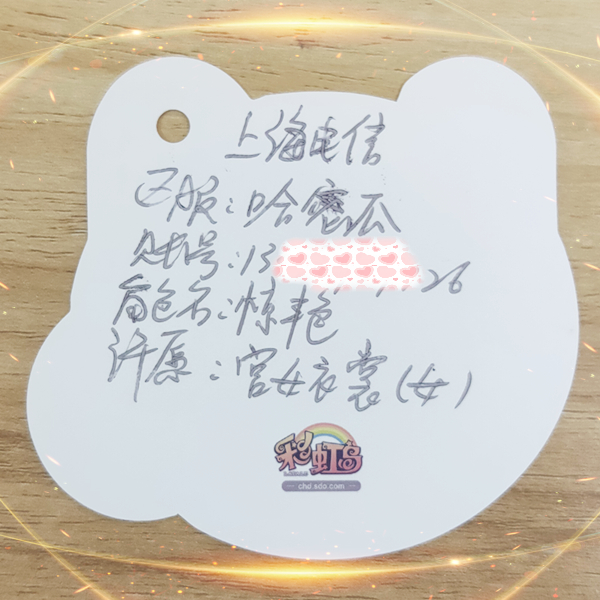 上海电信
区服：哈密瓜
账号：13 26
角色名：惊艳
许愿：宫女衣裳（女）
彩虹岛
chd.sdo.com